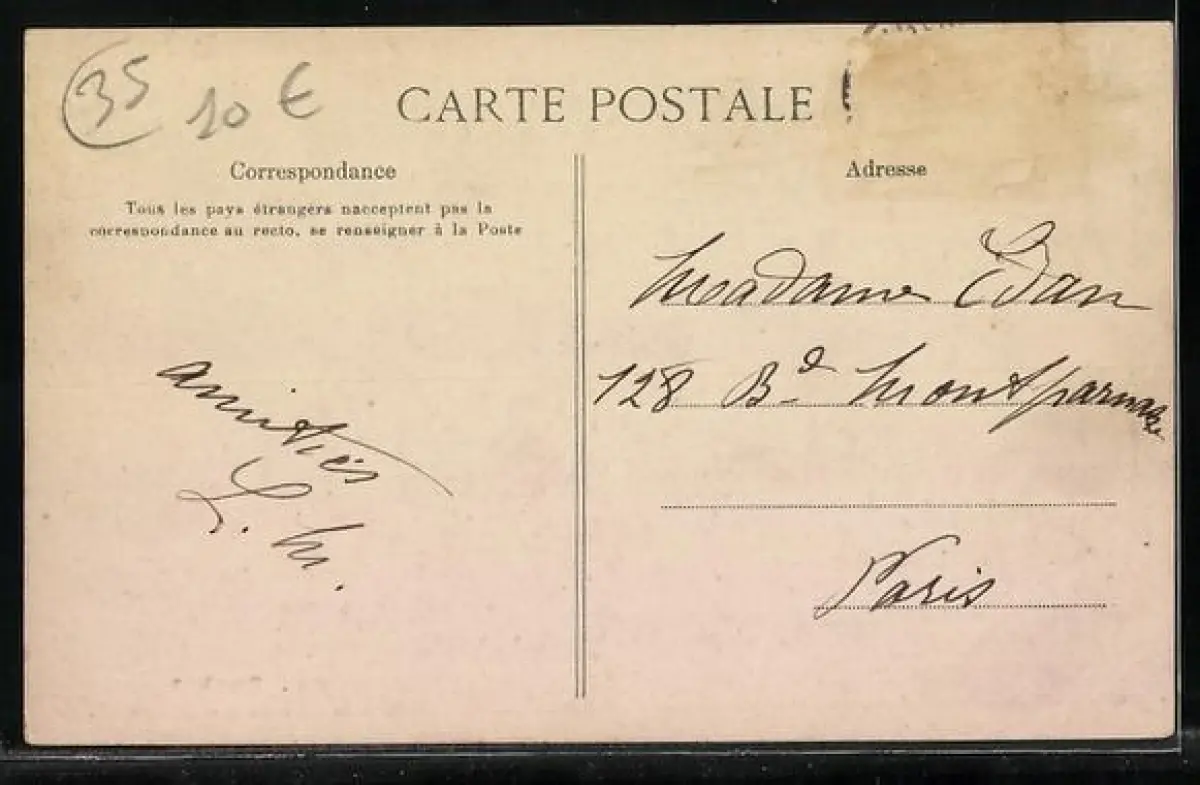 35
10 €
CARTE POSTALE
Correspondance
Tous les pays étrangers nacceptent pas la
correspondance au recto, se renseigner à la Poste
Adresse
Madame Edan
128 Bd Montparnasse
Paris
amitiés
L. M.